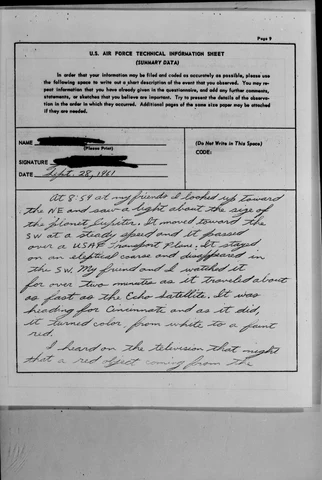 Page 9
U.S. AIR FORCE TECHNICAL INFORMATION SHEET
(SUMMARY DATA)
In order that your information may be filed and coded as accurately as possible, please use
the following space to write out a short description of the event that you observed. You may re-
peat information that you have already given in the questionnaire, and add any further comments,
statements, or sketches that you believe are important. Try to present the details of the observa-
tion in the order in which they occurred. Additional pages of the same size paper may be attached
if they are needed.
NAME
(Please Print)
SIGNATURE
DATE Sept. 28, 1961
(Do Not Write in This Space)
CODE:
At 8:59 at my friends I looked up toward
the NE and saw a light about the size of
the planet Jupiter. It moved toward the
SW at a steady speed and it passed
over a USAF Transport Plane. It stayed
on an eleptical coarse and disappeared in
the SW. My friend and I watched it
for over two minutes as it traveled about
as fast as the Echo Satellite. It was
heading for Cincinnate and as it did,
it turned color from white to a faint
red.
I heard on the television that night
that a red coming from the